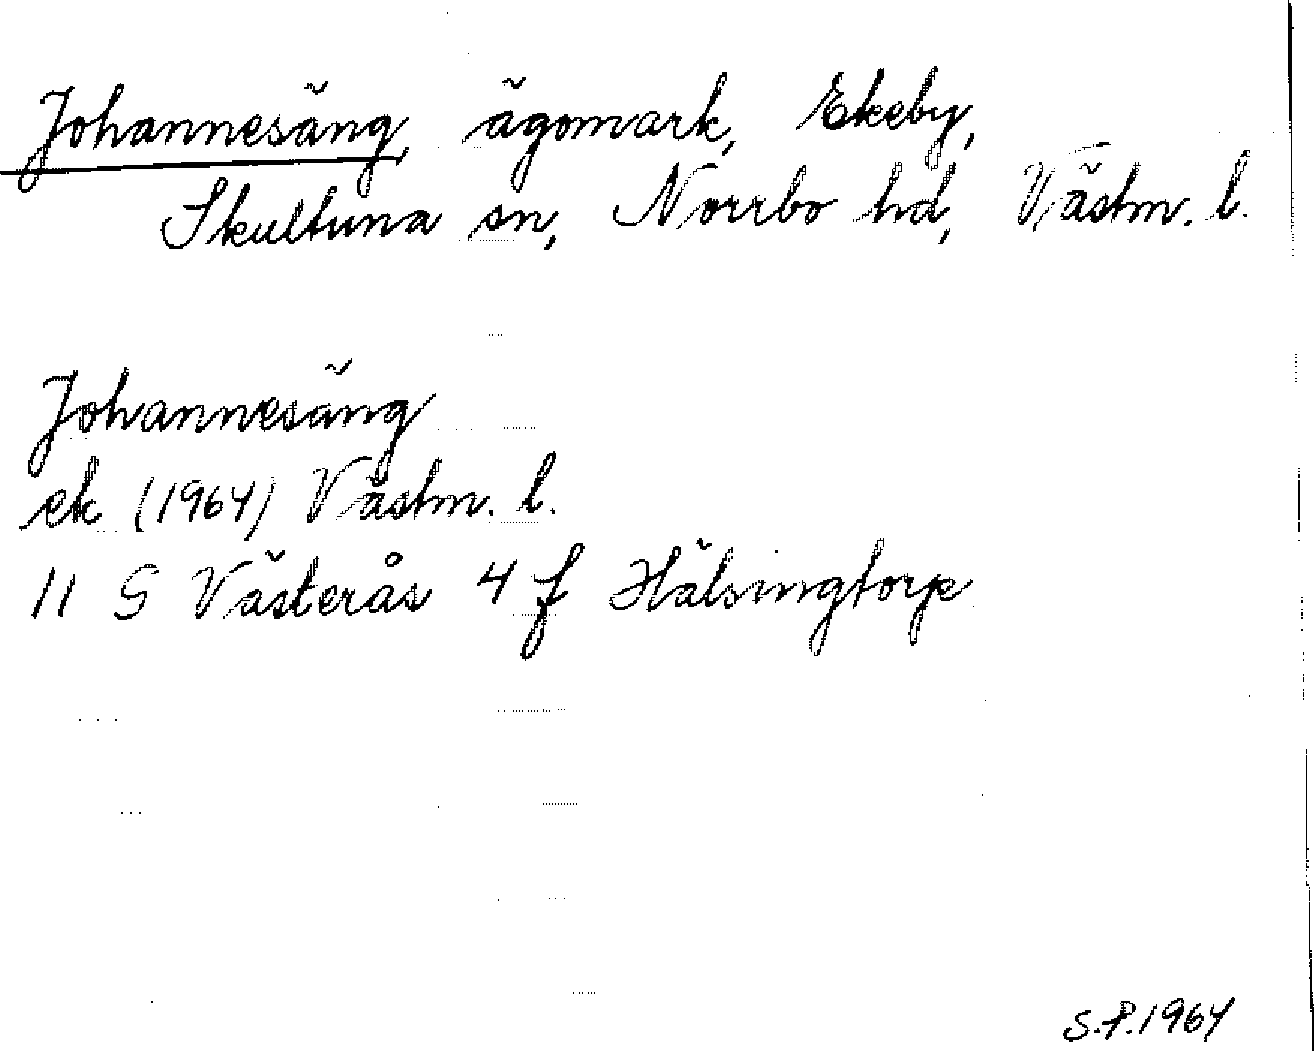 Johannesäng, ägomark, Ekeby,
Skultuna sn, Norrbo hd, Västm. l.
Johannesäng
ek (1964) Västm. l.
11 G Västerås 4 f Hälsingtorp
S.P. 1964